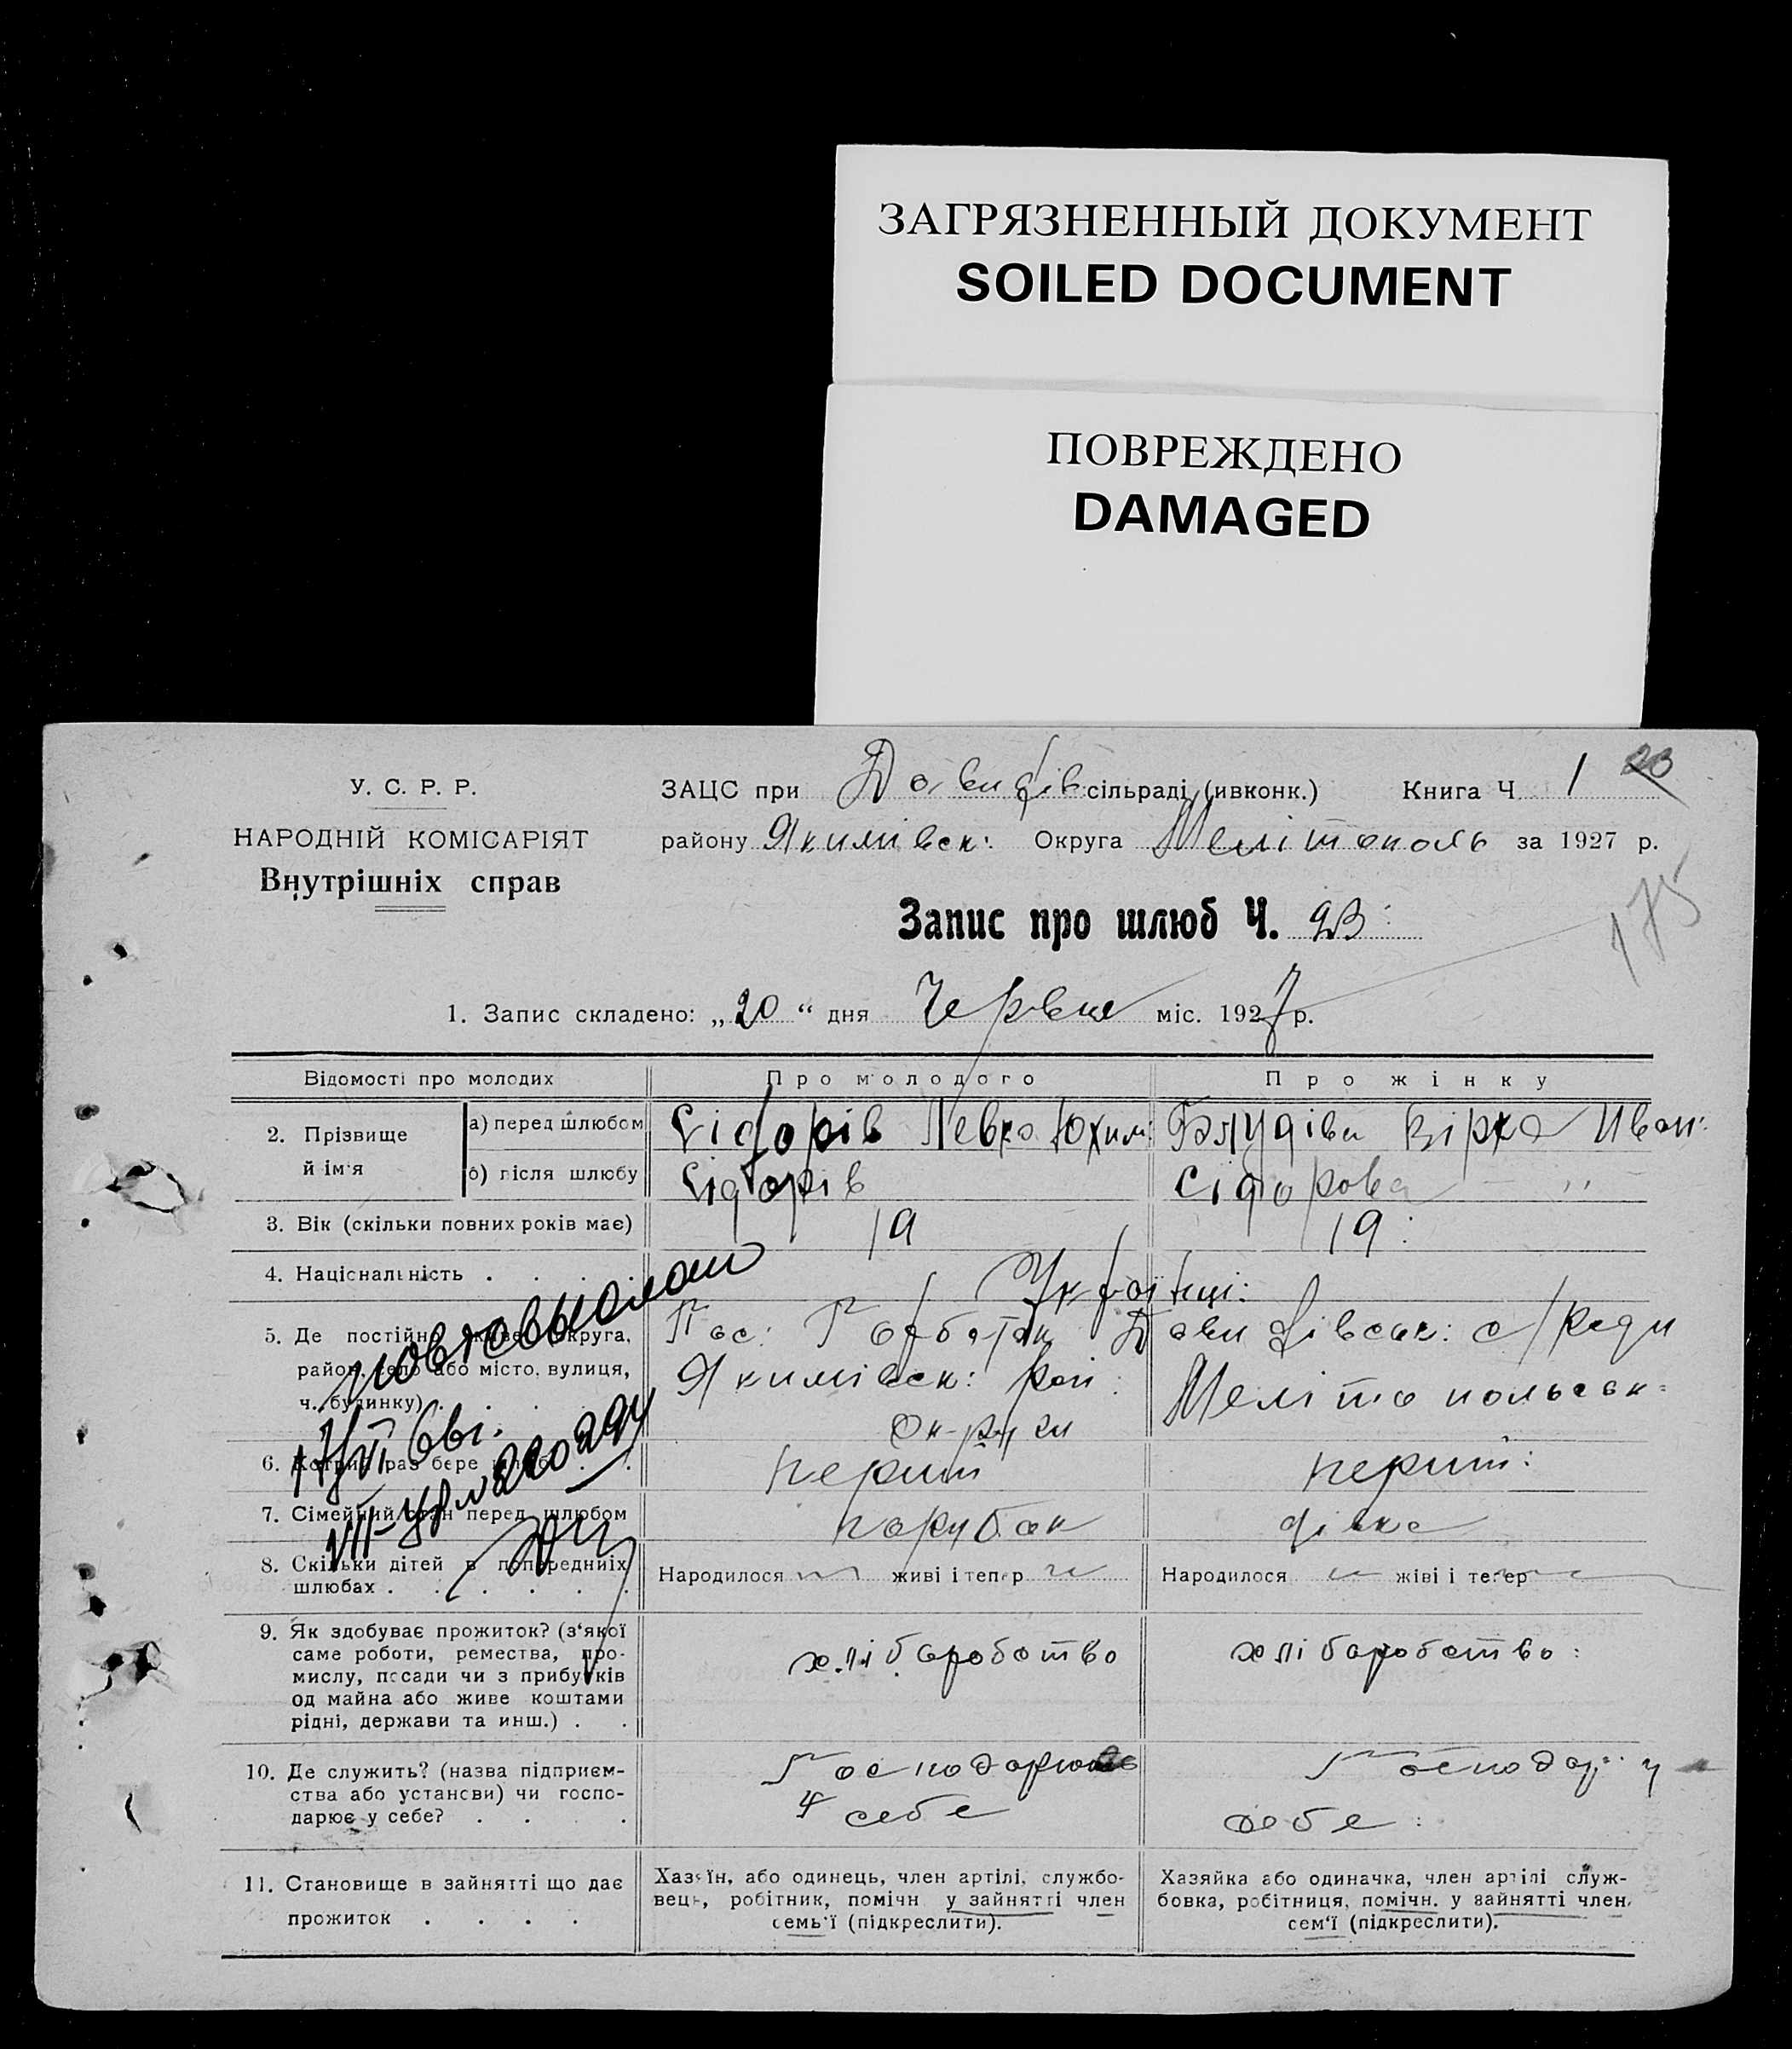 ЗАГРЯЗНЕННЫЙ ДОКУМЕНТ
SOILED DOCUMENT
ПОВРЕЖДЕНО
DAMAGED
У. С. Р. Р.
НАРОДНІЙ КОМІСАРІЯТ
Внутрішніх справ
ЗАЦС при Давидів: сільраді (ивконк.) Книга Ч. 1 23
району Якимівськ: Округа Мелітополь за 1927 р.
175
Запис про шлюб Ч. 23
1. Запис складено: „20“ дня Червце міс. 1927 р.
Відомості про молодих Про молодого Про жінку
2. Прізвище й ім'я
а) перед шлюбом Сідорів Левко Юхим: Блудіва Вірка Иван:
б) після шлюбу Сідорів Сідорова "
3. Вік (скільки повних років має) 19 19:
4. Національність . . . . Українці:
5. Де постійно живе (округа, район, село або місто, вулиця, ч. будинку) .
Пос: Давидівськ: с/ради
Якимівськ: рай: Мелітопольськ:
Округи
6. Котрий раз бере шлюб . . перший перший:
7. Сімейний стан перед шлюбом парубок дівка
8. Скільки дітей в попередніх шлюбах . . . . . .
Народилося живі і тепер Народилося жіві і тепер
9. Як здобуває прожиток? (з'якої
саме роботи, ремества, про-
мислу, посади чи з прибутків
од майна або живе коштами
рідні, держави та инш.) . .
хліборобство хліборобство:
10. Де служить? (назва підприєм-
ства або установи) чи госпо-
дарює у себе? . . . .
Господарює у себе
Господар: у себе:
11. Становище в зайнятті що дає
прожиток . . . .
Хазяїн, або одинець, член артілі, службо-
вець, робітник, помічн у зайнятті член
семь'ї (підкреслити).
Хазяйка або одиначка, член артілі служ-
бовка, робітниця, помічн. у зайнятті член
сем'ї (підкреслити).